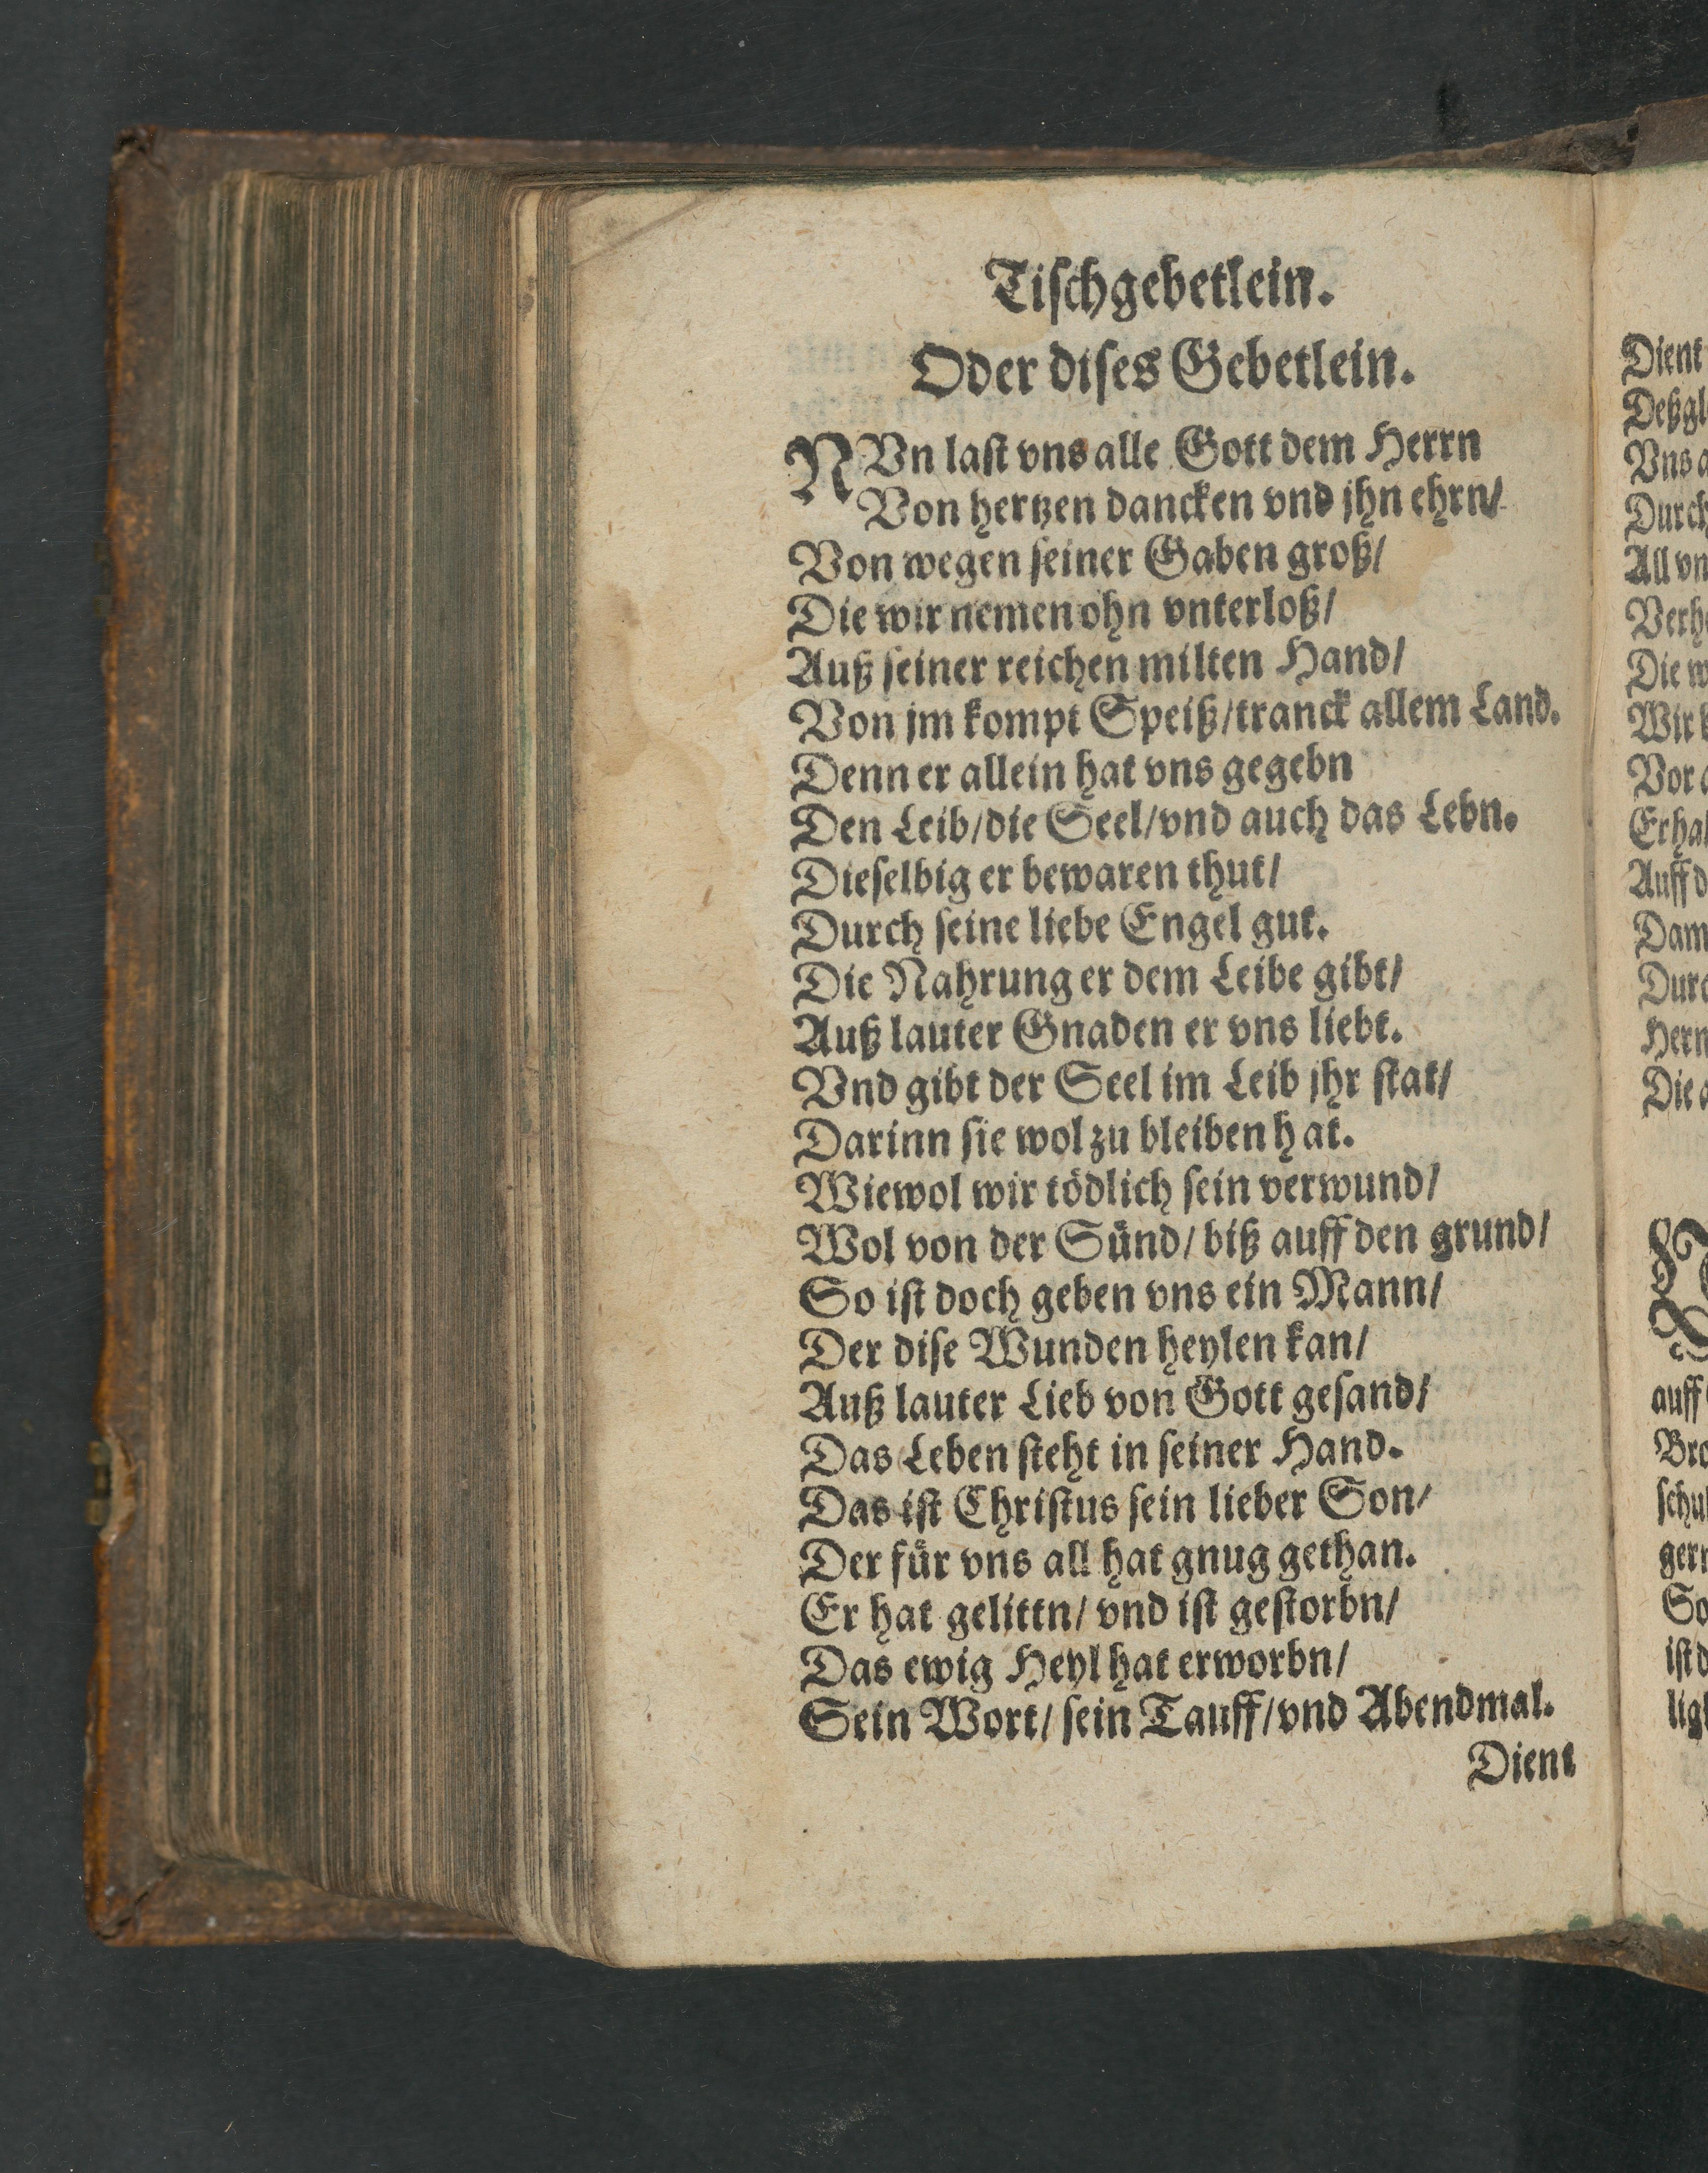 Tischgebetlein.
Oder dises Gebetlein.
NVn last vns alle Gott dem Herrn
Von hertzen dancken vnd jhn ehrn/
Von wegen seiner Gaben groß/
Die wir nemen ohn vnterloß/
Auß seiner reichen milten Hand/
Von jm kompt Speiß/tranck allem Land.
Denn er allein hat vns gegebn
Den Leib/die Seel/vnd auch das Lebn.
Dieselbig er bewaren thut/
Durch seine liebe Engel gut.
Die Nahrung er dem Leibe gibt/
Auß lauter Gnaden er vns liebt.
Vnd gibt der Seel im Leib jhr stat/
Darinn sie wol zu bleiben hat.
Wiewol wir tödlich sein verwund/
Wol von der Sünd/ biß auff den grund/
So ist doch geben vns ein Mann/
Der dise Wunden heylen kan/
Auß lauter Lieb von Gott gesand/
Das Leben steht in seiner Hand.
Das ist Christus sein lieber Son/
Der für vns all hat gnug gethan.
Er hat gelittn/ vnd ist gestorbn/
Das ewig Heyl hat erworbn/
Sein Wort/ sein Tauff/vnd Abendmal.
Dient
Dient
Durch
Die
auff